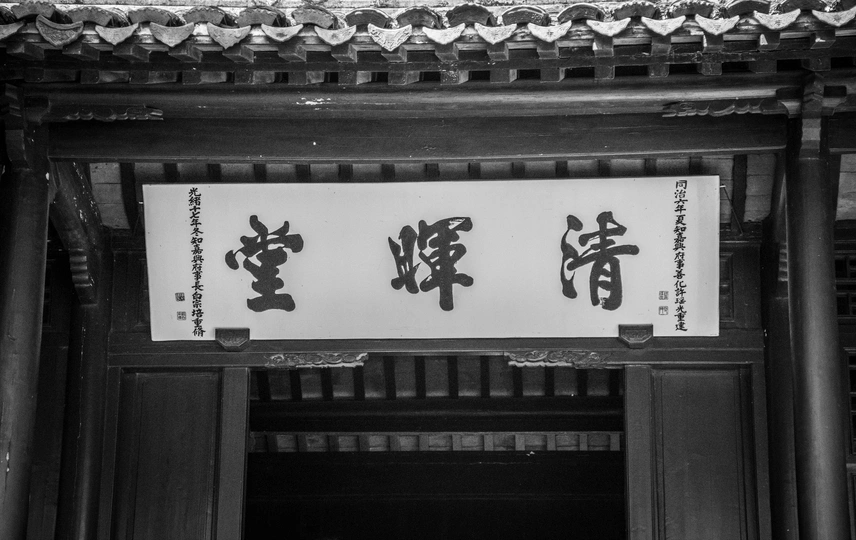 同治六年夏知嘉興府事善化許瑶光重建
清暉堂
光緒十七年冬知嘉興府事長白宗培重脩